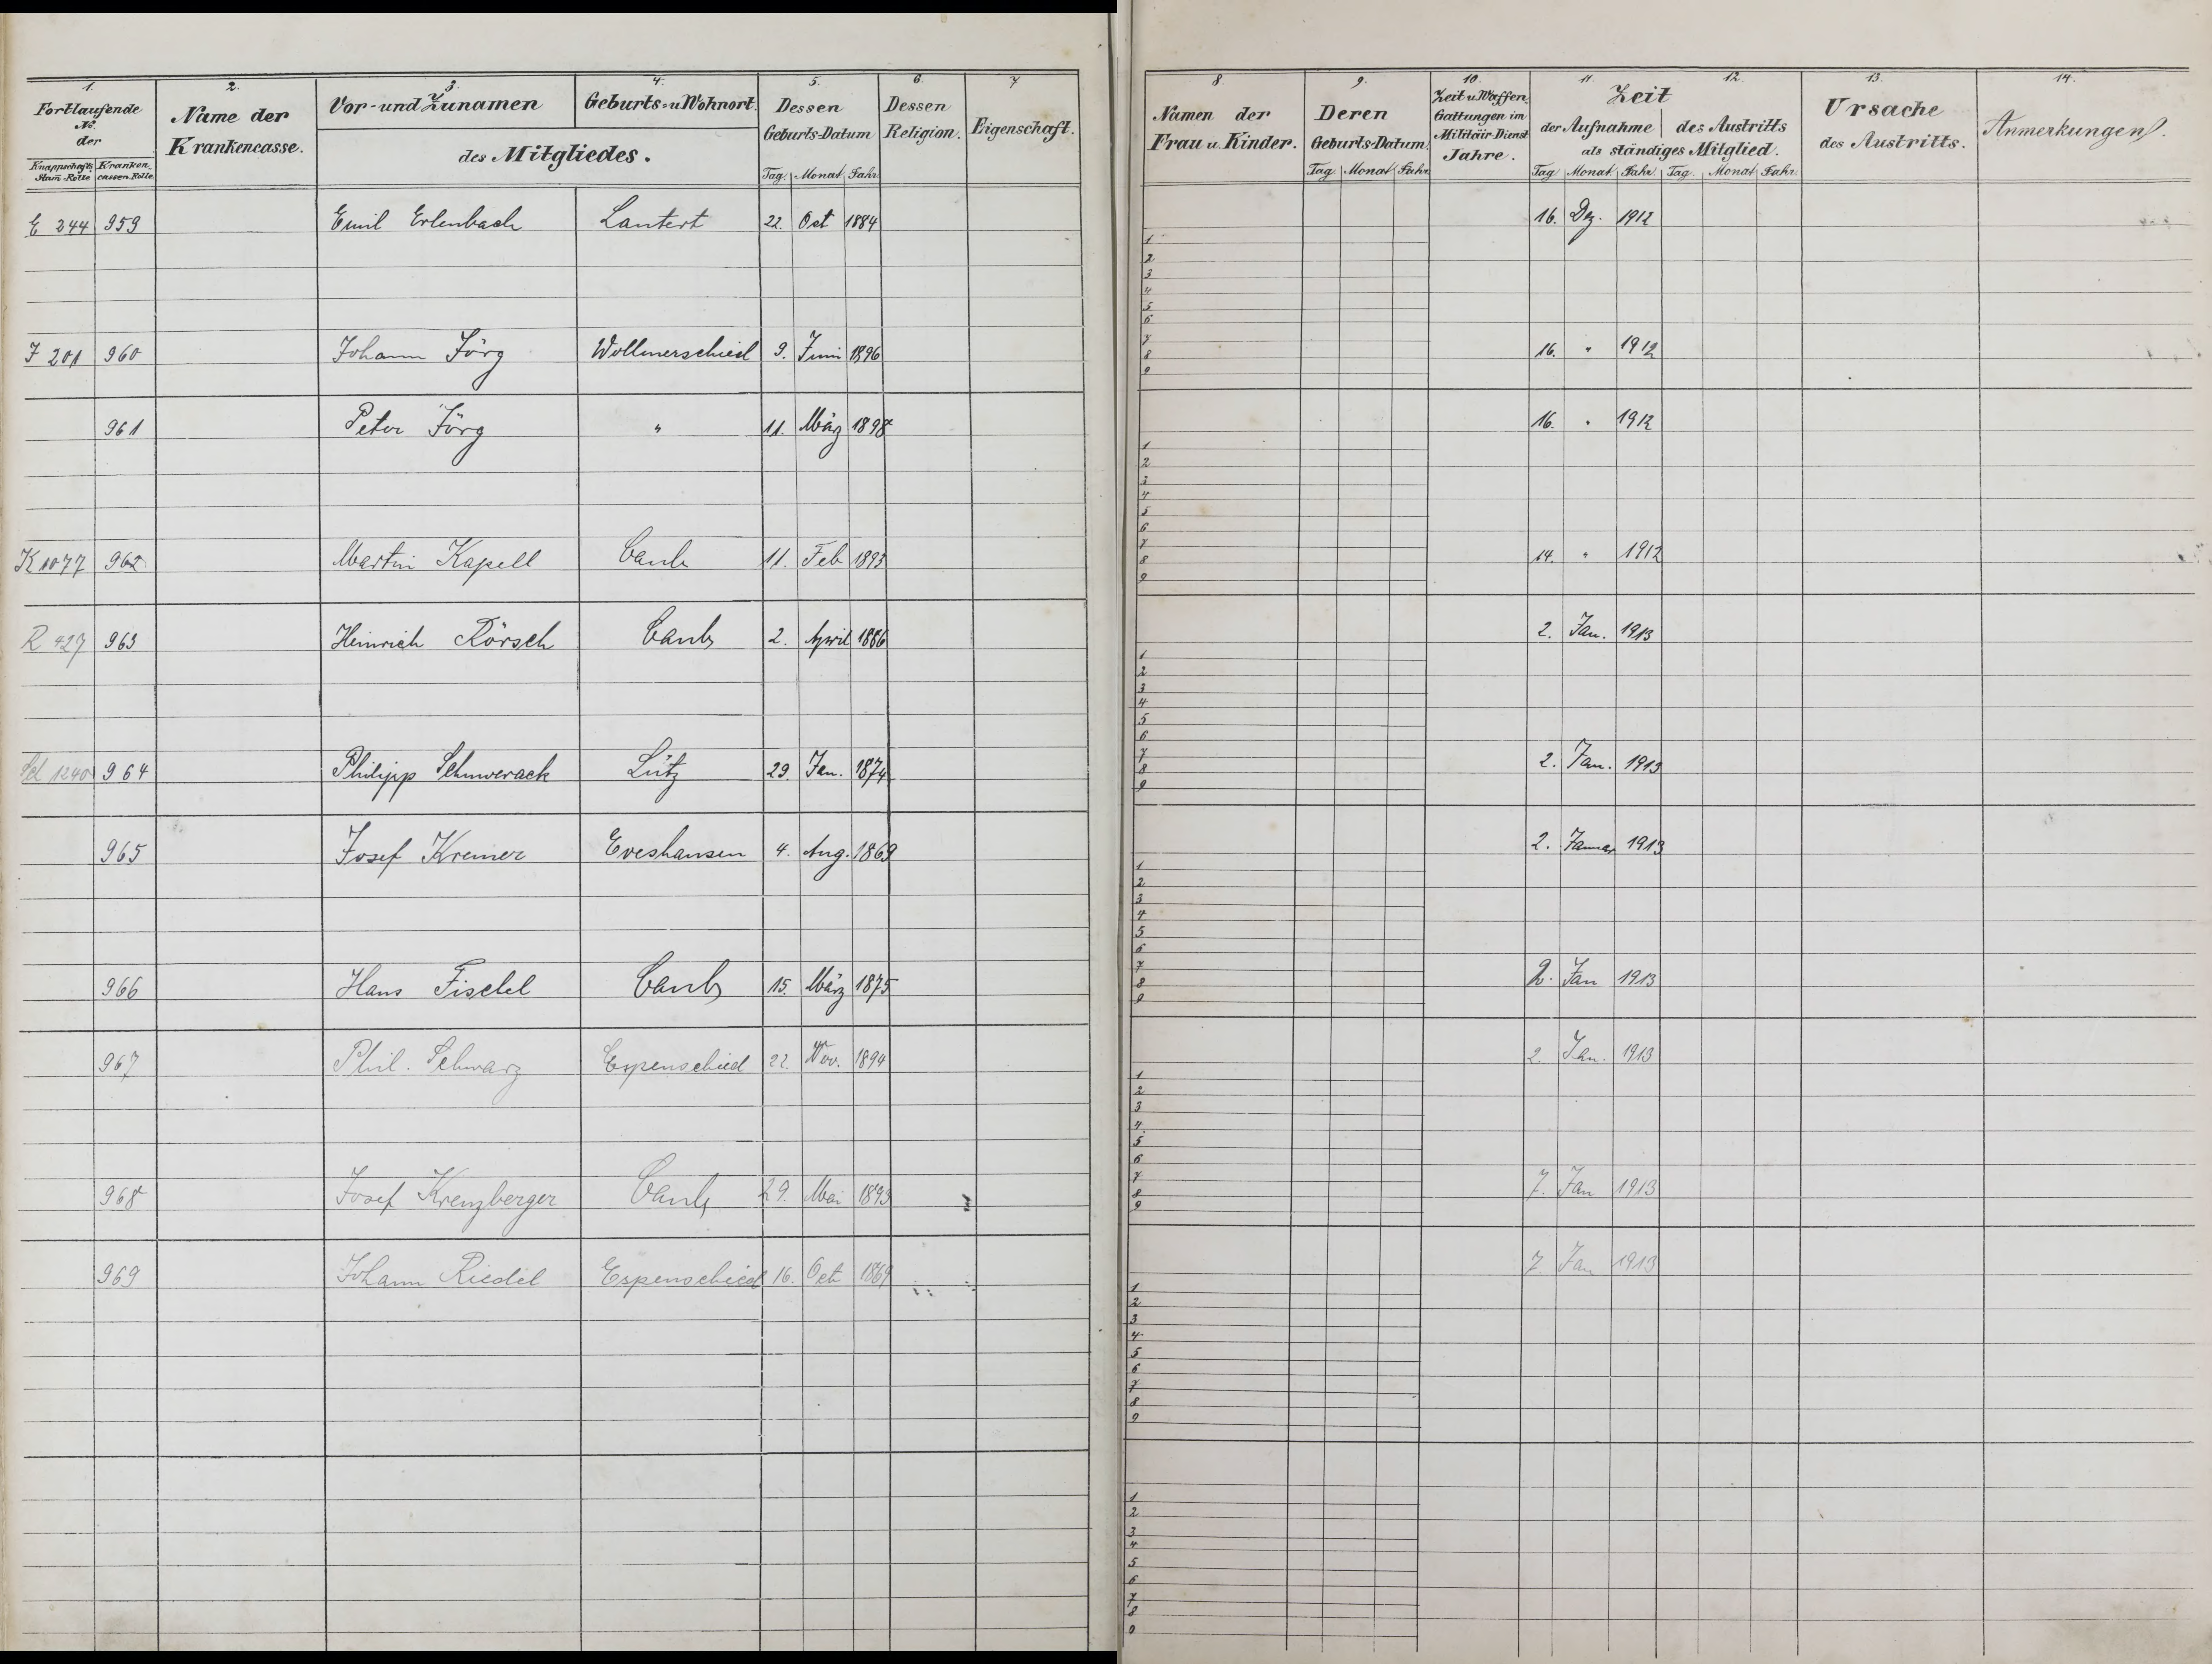 1. 2. 3. 4. 5. 6. 7
Fortlaufende No. der
Knappschafts Stam-Rolle Kranken cassen-Rolle
Name der Krankencasse.
Vor- und Zunamen Geburts- u Wohnort.
des Mitgliedes.
Dessen Geburts-Datum
Tag. Monat Jahr.
Dessen Religion.
Eigenschaft.
E 244 959 Emil Erlenbach Lautert 22. Oct 1884
J 201 960 Johann Jörg Wollmerschied 9. Juni 1896
961 Peter Jörg " 11. März 1898
K 1077 962 Martin Kapell Caub 11. Feb 1893
R 427 963 Heinrich Rörsch Caub 2. April 1886
Sch 1240 964 Philipp Schwerack Lütz 29. Jan. 1874
965 Josef Kremer Eveshausen 4. Aug. 1869
966 Hans Fischel Caub 15. März 1875
967 Phil. Schwarz Espenschied 22. Nov. 1894
968 Josef Kreuzberger Caub 29. Mai 1893
969 Johann Riedel Espenschied 16. Oct 1869
8 9. 10. 11. 12. 13. 14.
Namen der Frau u. Kinder.
Deren Geburts-Datum.
Tag Monat Jahr
Zeit u. Waffen Gattungen im Militär-Dienst Jahre.
Zeit
der Aufnahme des Austritts
als ständiges Mitglied.
Tag Monat Jahr Tag. Monat Jahr.
Ursache des Austritts.
Anmerkungen.
16. Dez. 1912
1
2
3
4
5
6
7
16. " 1912
8
9
16. " 1912
1
2
3
4
5
6
7
14. " 1912
8
9
2. Jan. 1913
1
2
3
4
5
6
7
2. Jan. 1913
8
9
2. Januar 1913
1
2
3
4
5
6
7
2. Jan 1913
8
9
2. Jan. 1913
1
2
3
4
5
6
7
7. Jan 1913
8
9
7. Jan 1913
1
2
3
4
5
6
7
8
9
1
2
3
4
5
6
7
8
9